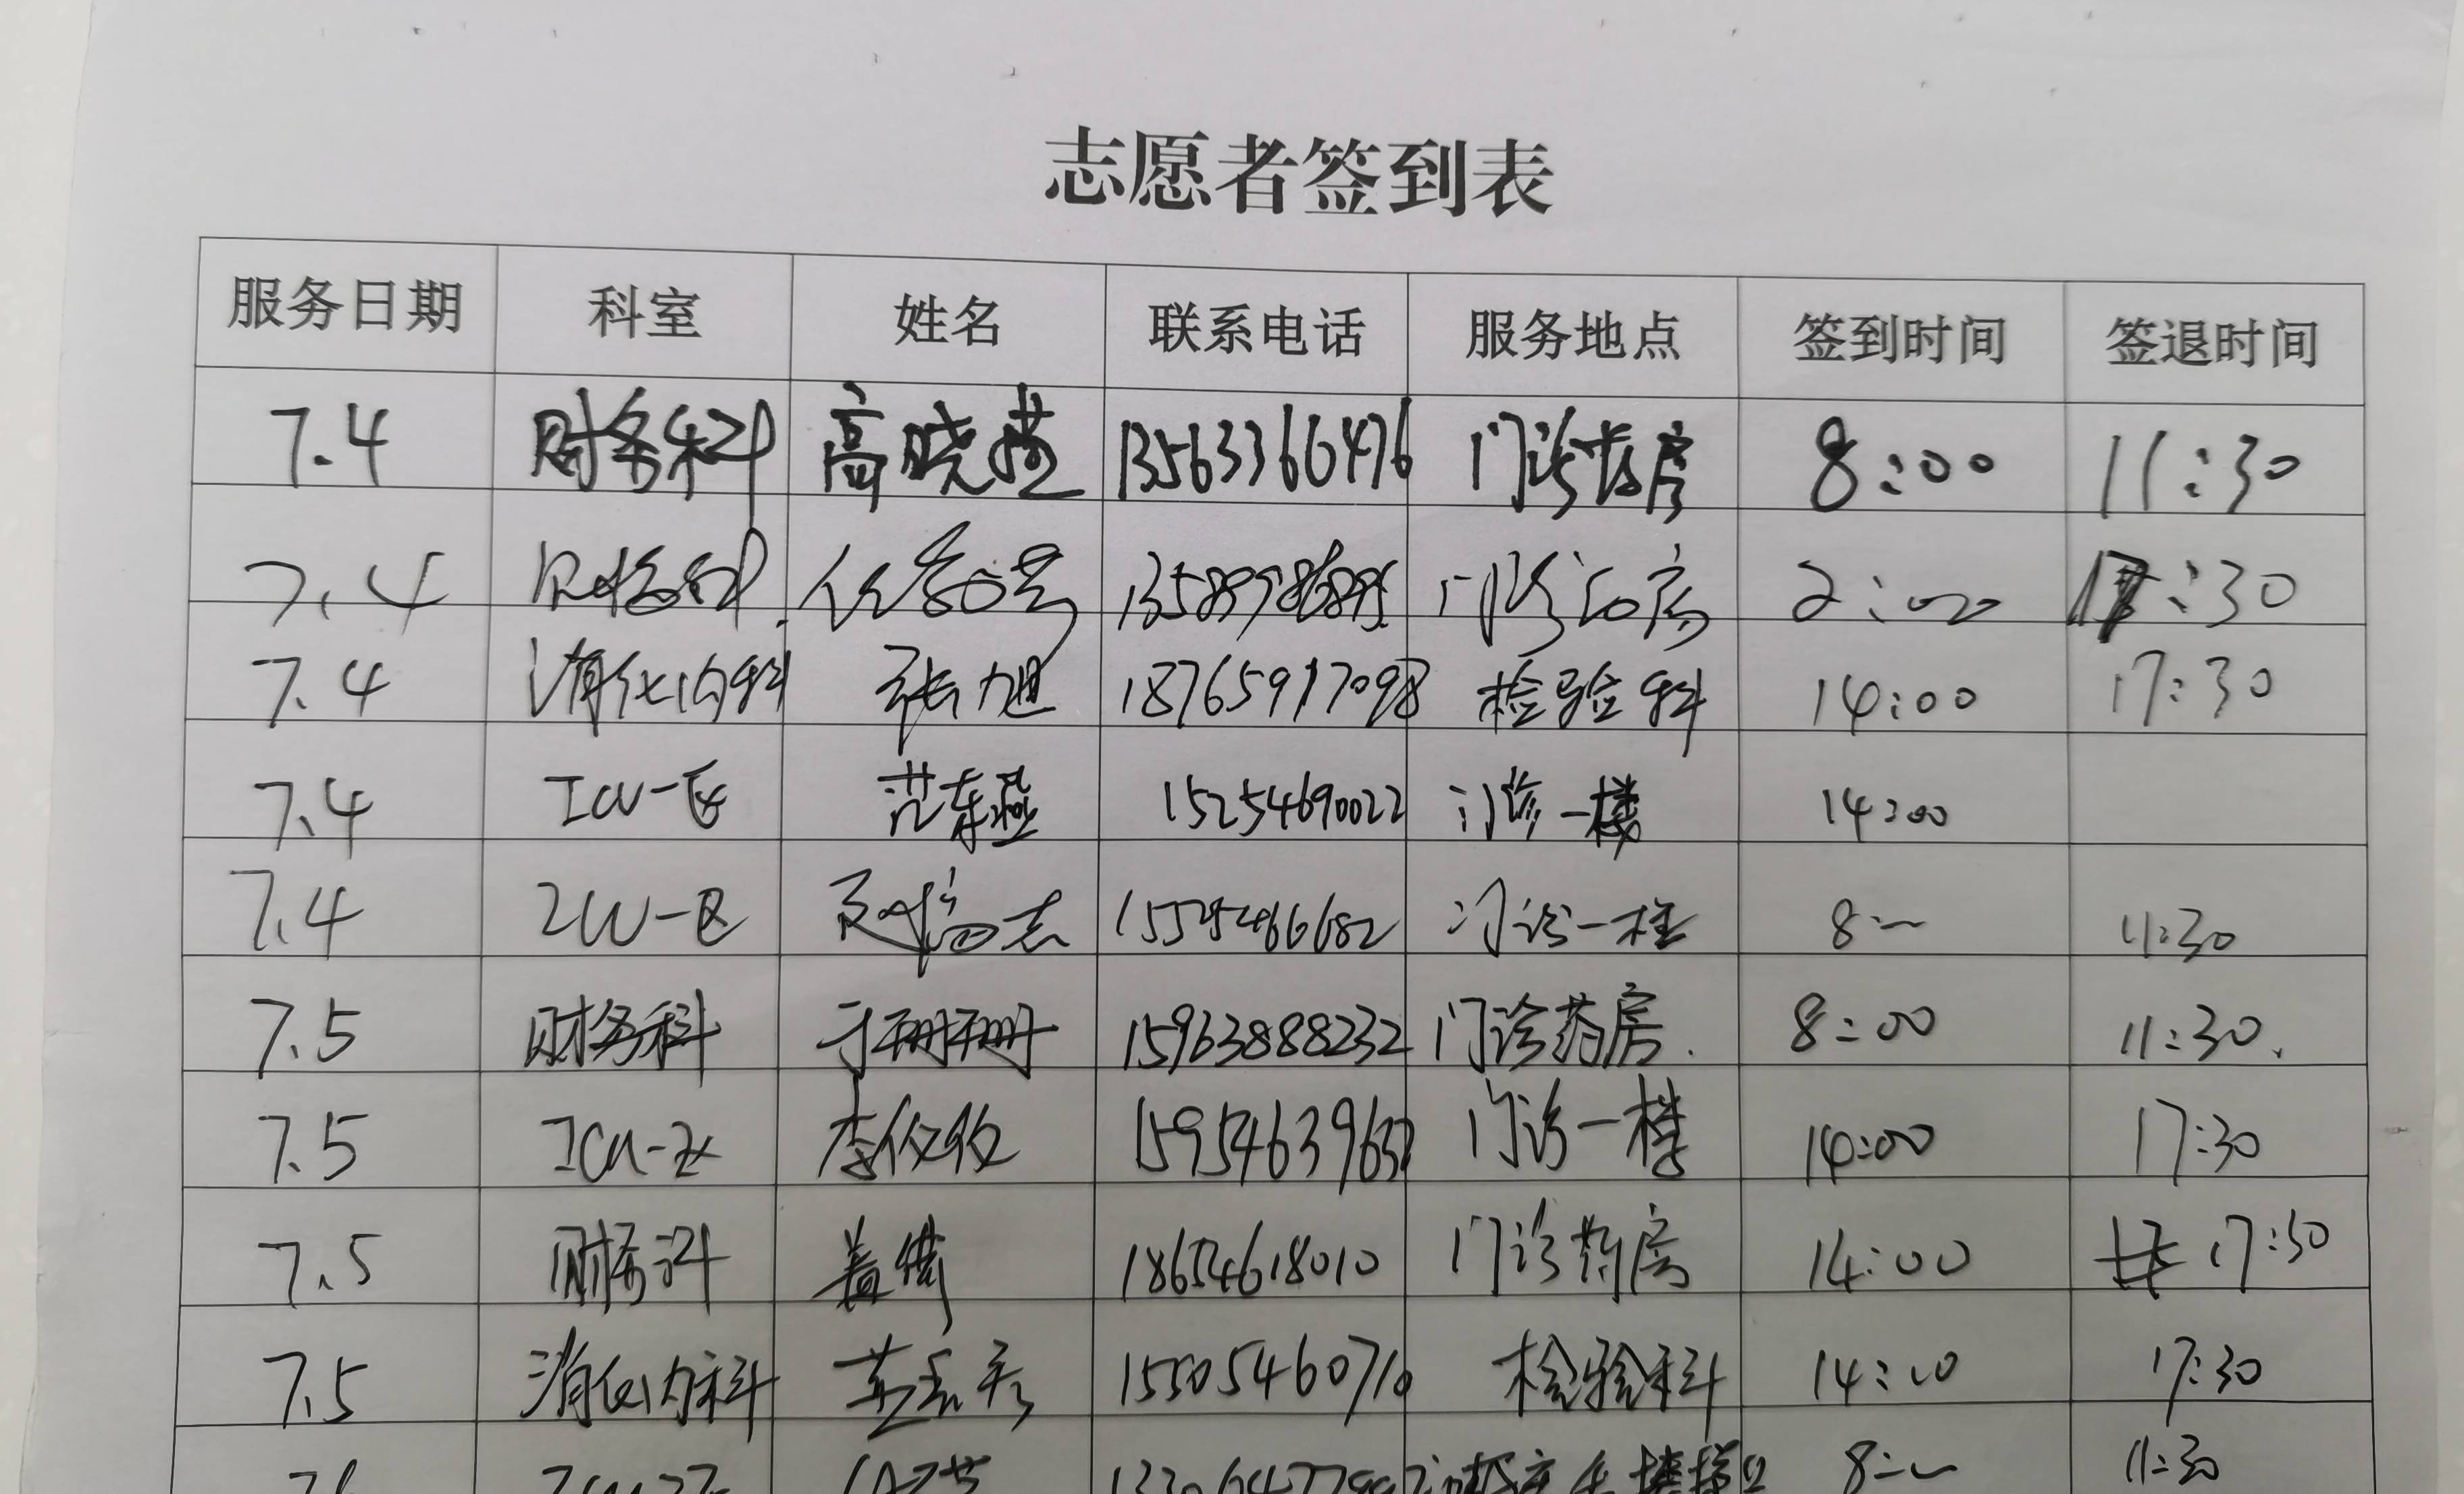 志愿者签到表
服务日期 科室 姓名 联系电话 服务地点 签到时间 签退时间
7.4 财务科 高晓燕 13563366476 门诊药房 8:00 11:30
7.4 财务科 门诊药房 2:00 :30
7.4 消化内科 张旭 18765917098 检验科 14:00 17:30
7.4 ICU-区 范东燕 15254690022 门诊一楼 14:00
7.4 ICU-区 门诊一楼 8: 11:30
7.5 财务科 于珊珊 15963888232 门诊药房. 8:00 11:30.
7.5 门诊一楼 14:00 17:30
7.5 财务科 18654618010 门诊药房 14:00 17:30
7.5 消化内科 15505460710 检验科 14:00 17:30
8: 11:30